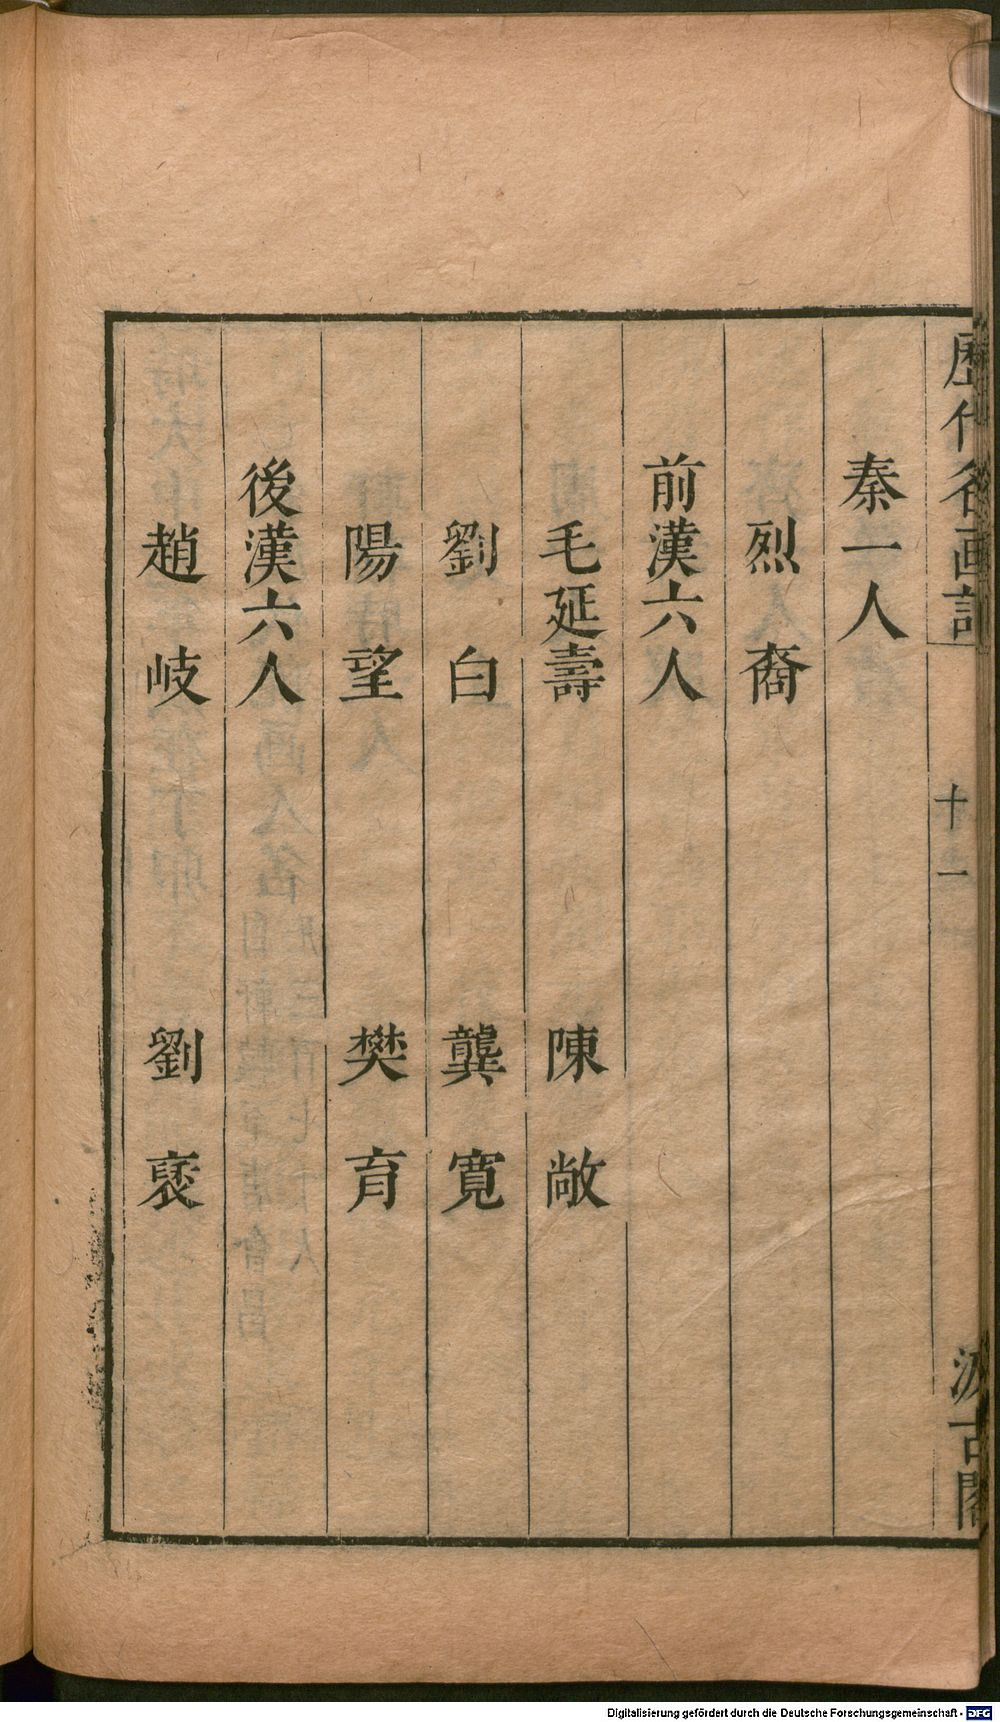 歷代名画記
十一
汲古閣
秦一人
烈裔
前漢六人
毛延壽 陳敞
劉白 龔寬
陽望 樊育
後漢六人
趙岐 劉褒
Digitalisierung gefördert durch die Deutsche Forschungsgemeinschaft - DFG